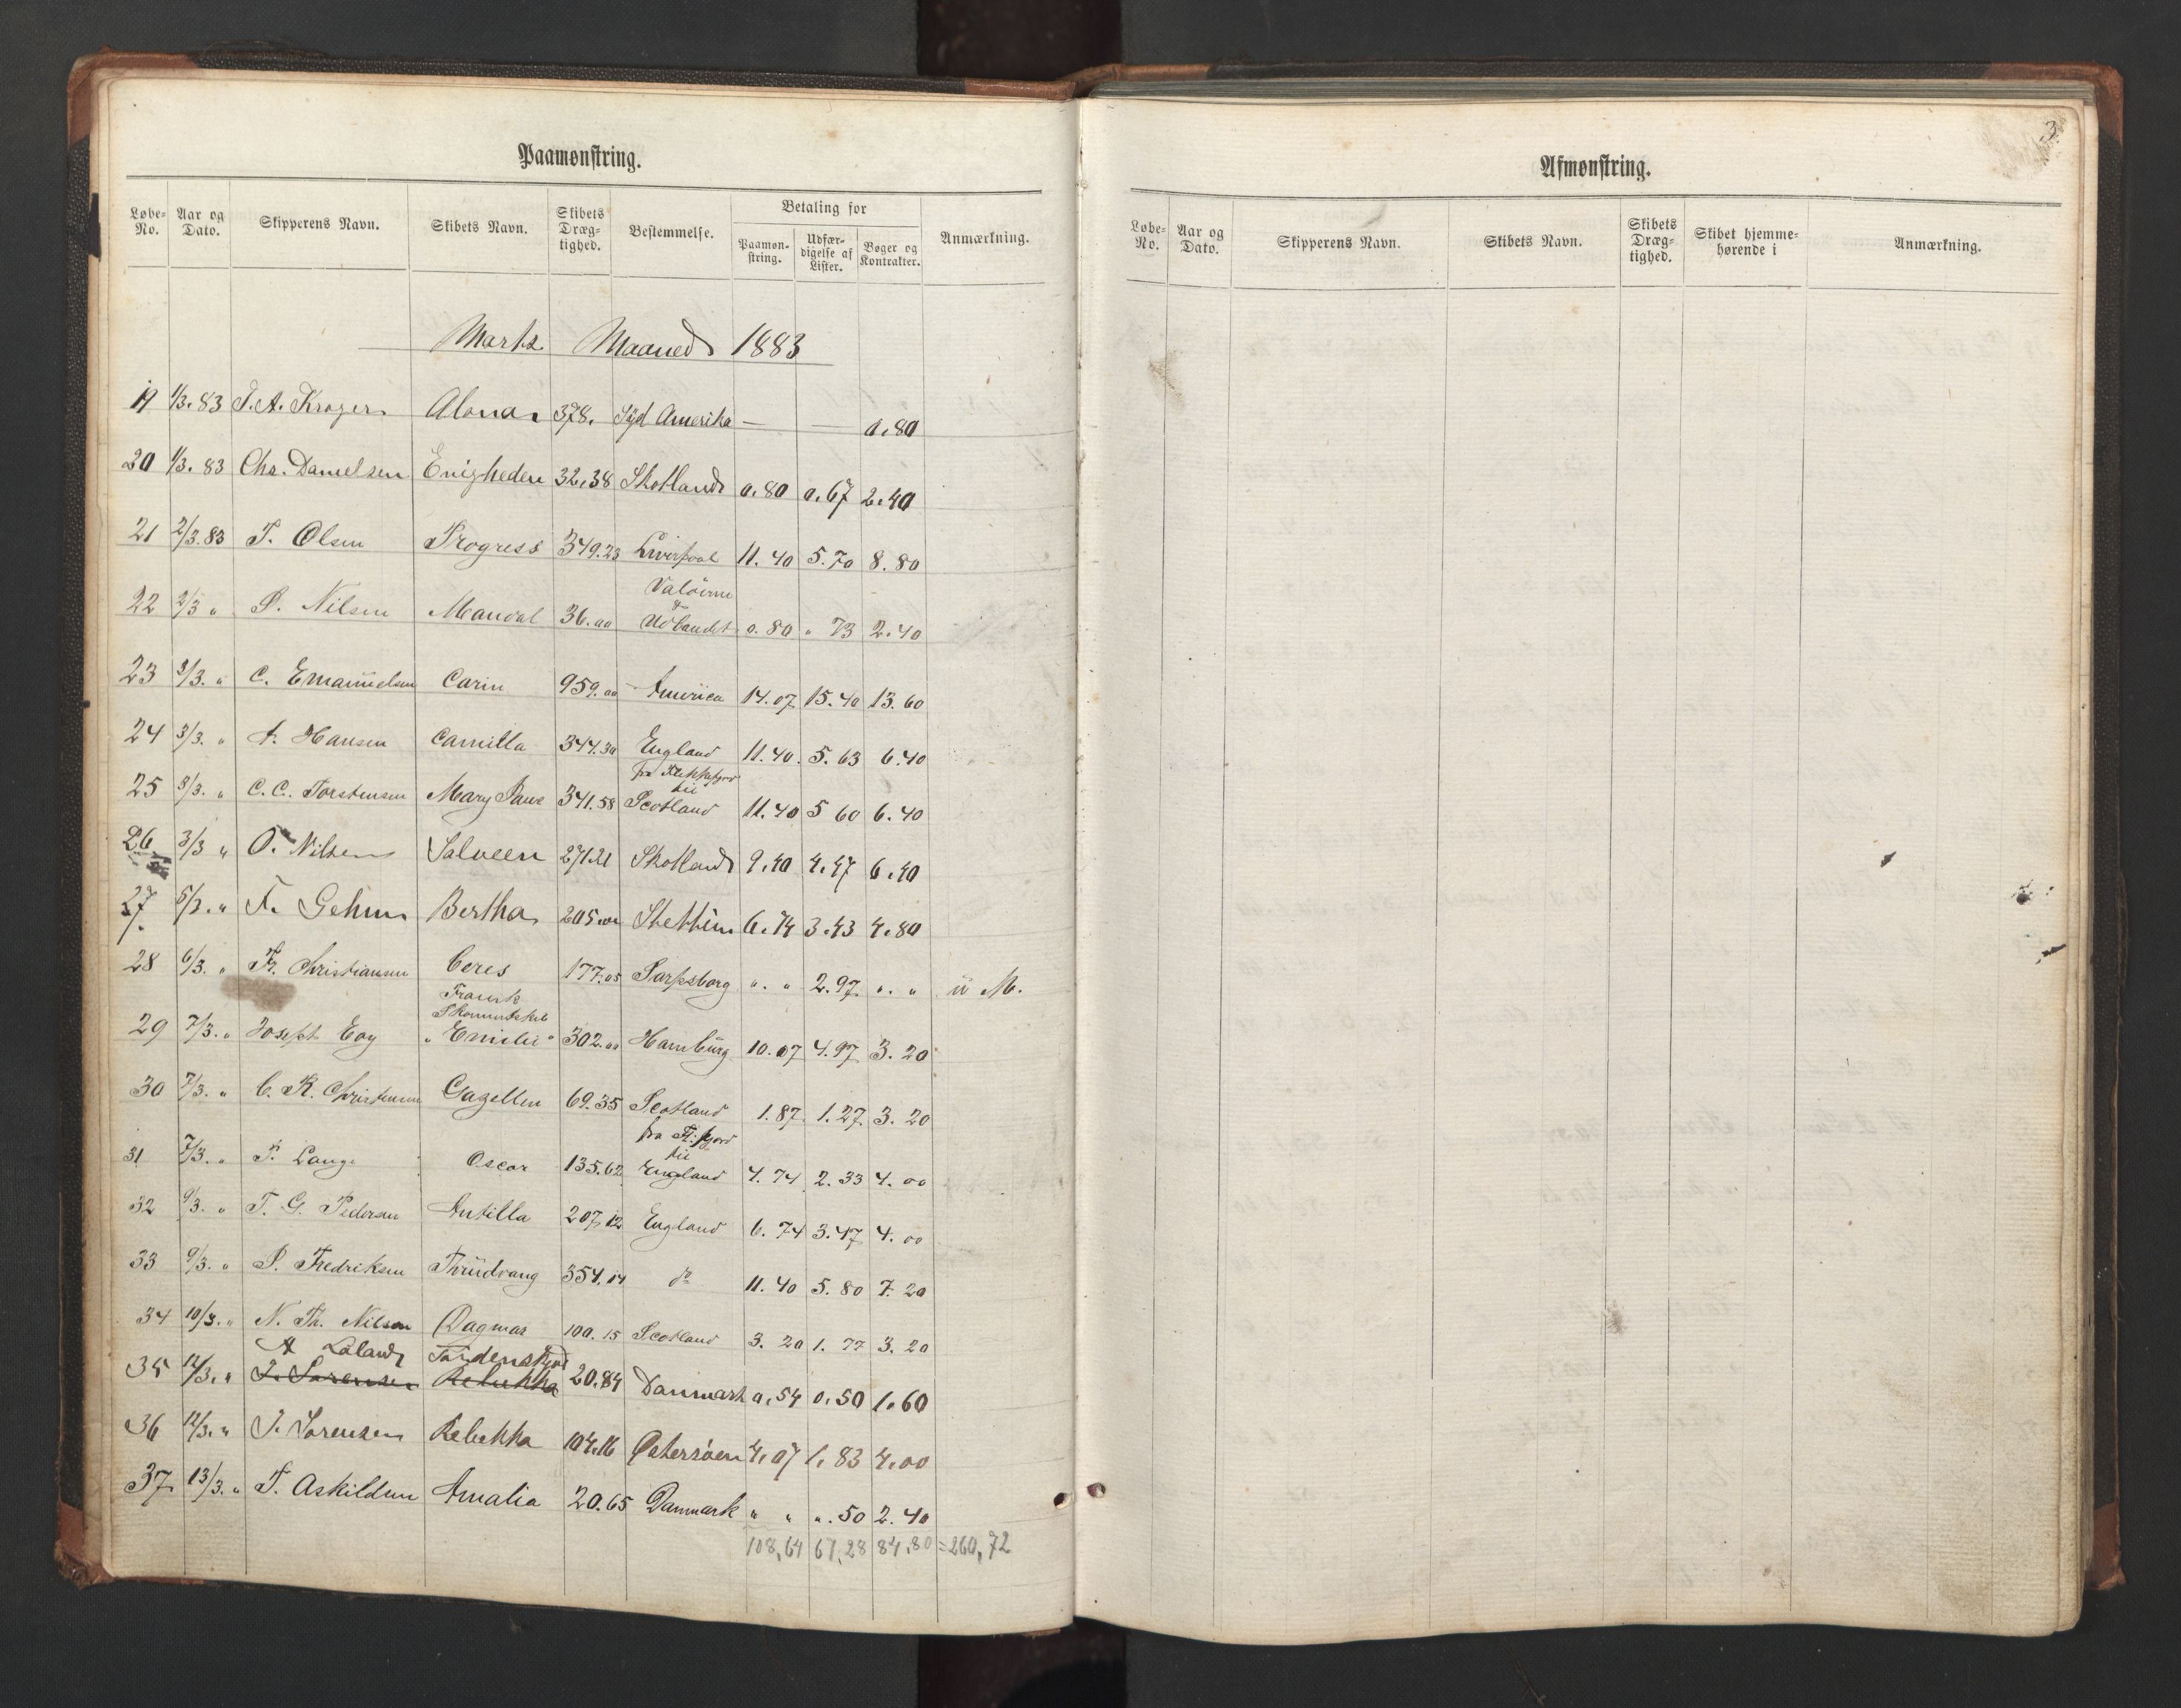 Paamønstring.
Løbe-No. Aar og Dato. Skipperens Navn. Skibets Navn. Skibets Dræg-tighed. Bestemmelse. Betaling for Paamøn-string. Udfær-digelse af Lister. Bøger og Kontrakter. Anmærkning.
Marts Maaned 1883
19 1/3.83 J.A. Krøger Alona 378. Syd Amerika — — 0.80
20 1/3.83 Chr. Danielsen Enigheden 32.38 Skotland 0.80 0.67 2.40
21 2/3.83 T. Olsen Progress 349.23 Liverpool 11.40 5.70 8.80
22 2/3 " P. Nilsen Mandal 36.00 Valöerne Udlandet 0.80 " 73 2.40
23 3/3. " C. Emanuelsen Carin 959.00 America 14.07 15.40 13.60
24 3/3. " A. Hansen Camilla 344.30 England 11.40. 5.63 6.40
25 3/3. " C.C. Torstensen Mary Paus 341.58 fra Flekkefjord til Scotland 11.40 5 60 6.40
26 3/3 " O. Nilsen Salveen 271.21 Skotland 9.40 4.47 6.40
27. 5/3. " F. Gehm Bertha 205.00 Stettin 6.74 3.43 4.80
28 6/3. " Fr. Christiansen Ceres 177.05 Sarpsborg ". " 2.97. ". " u M.
29 7/3. " Joseph Eoy Fransk Skonnertskib "Emilie" 302.00 Hamburg 10.07 4.97 3.20
30 7/3. " C. R. Christensen Gazellen 69.35 Scotland 1.87. 1.27. 3.20
31 7/3. " T. Lange Oscar 135.62 fra Fl: fjord til England 4.74 2.33 4.00
32 9/3. " T. G. Pedersen Antilla 207.12 England 6.74 3.47 4.00
33 9/3. " P. Fredriksen Thrudvang 354.14 do 11.40 5.80 7.20
34 10/3. " N. Th. Nilsen Dagmar 100.15 Scotland 3.20 1.77 3.20
A Laland Tordenskjold
35 12/3. " J. Sørensen Rebekka 20.84 Danmark 0.54 0.50 1.60
36 12/3. " J. Sørensen Rebekka 104.16 Østersøen 4.07 1.83 4.00
37 13/3. " T. Askildsen Amalia 20.65 Danmark " " ".50 2.40
108,64 67,28 84,80 = 260,72
3.
Afmønstring.
Løbe-No. Aar og Dato. Skipperens Navn. Skibets Navn. Skibets Dræg-tighed. Skibet hjemme-hørende i Anmærkning.